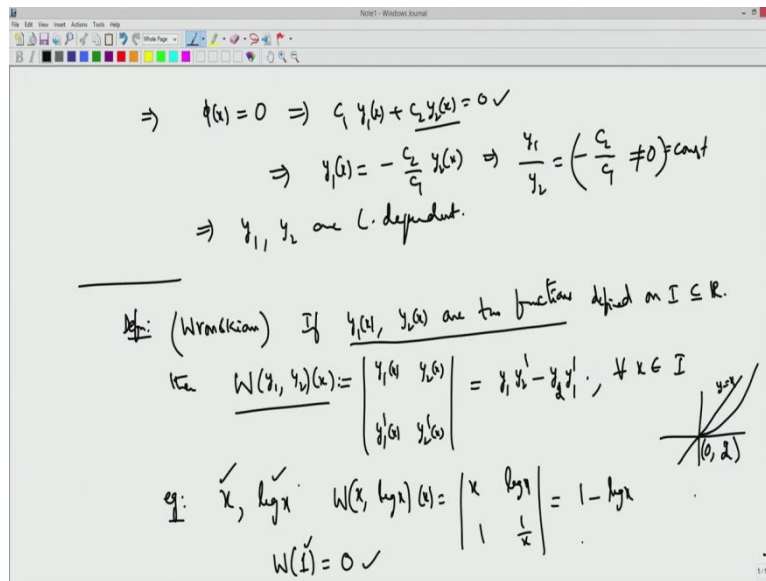 Note1 - Windows Journal
File Edit View Insert Actions Tools Help
Whole Page
B I
⇒ ϕ(x) = 0 ⇒ c₁ y₁(x) + c₂ y₂(x) = 0 ✓
⇒ y₁(x) = - c₂/c₁ y₂(x) ⇒ y₁/y₂ = (- c₂/c₁ ≠ 0) = const
⇒ y₁, y₂ are L. dependent.
Defn: (Wronskian) If y₁(x), y₂(x) are two functions defined on I ⊆ R.
then W(y₁, y₂)(x) := | y₁(x) y₂(x) | = y₁ y₂' - y₂ y₁', ∀ x ∈ I
| y₁'(x) y₂'(x) |
y=x
(0, 2)
eg: x, log x W(x, log x)(x) = | x log x | = 1 - log x
| 1 1/x |
W(1) = 0 ✓
1/1